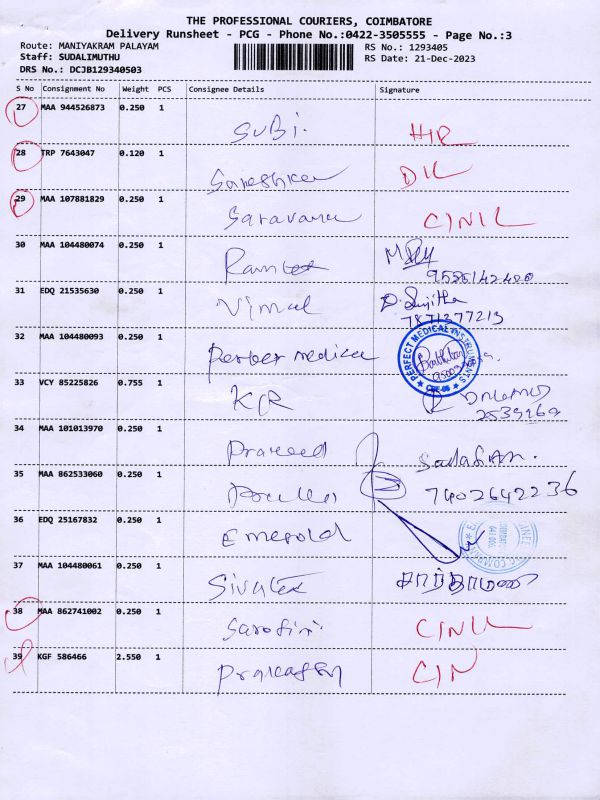 THE PROFESSIONAL COURIERS, COIMBATORE
Delivery Runsheet - PCG - Phone No.:0422-3505555 - Page No.:3
Route: MANIYAKRAM PALAYAM
RS No.: 1293405
Staff: SUDALIMUTHU
RS Date: 21-Dec-2023
DRS No.: DCJB129340503
S No Consignment No Weight PCS Consignee Details Signature
27 MAA 944526873 0.250 1
SUBi.
28 TRP 7643047 0.120 1
Sareshker DIL
29 MAA 107881829 0.250 1
Saravana CINIL
30 MAA 104480074 0.250 1
Ramtex
31 EDQ 21535630 0.250 1
Vimal D. Sujitha
7871377213
32 MAA 104480093 0.250 1
Perfect medical PERFECT MEDICAL INSTRUMENTS
33 VCY 85225826 0.755 1
KCR
2539269
34 MAA 101013970 0.250 1
Praveed Sadasivam.
35 MAA 862533060 0.250 1
7402642236
36 EDQ 25167832 0.250 1
Emerold
37 MAA 104480061 0.250 1
Sivatex
38 MAA 862741002 0.250 1
Sarofini CINIL
39 KGF 586466 2.550 1
CIN